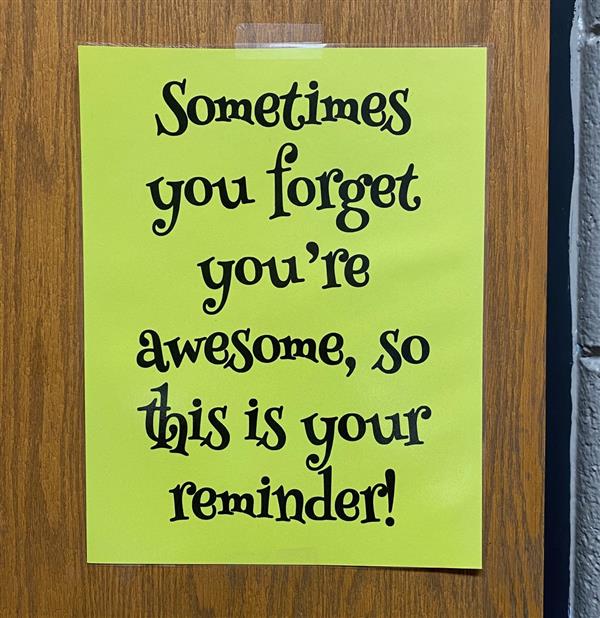 Sometimes
you forget
you're
awesome, so
this is your
reminder!